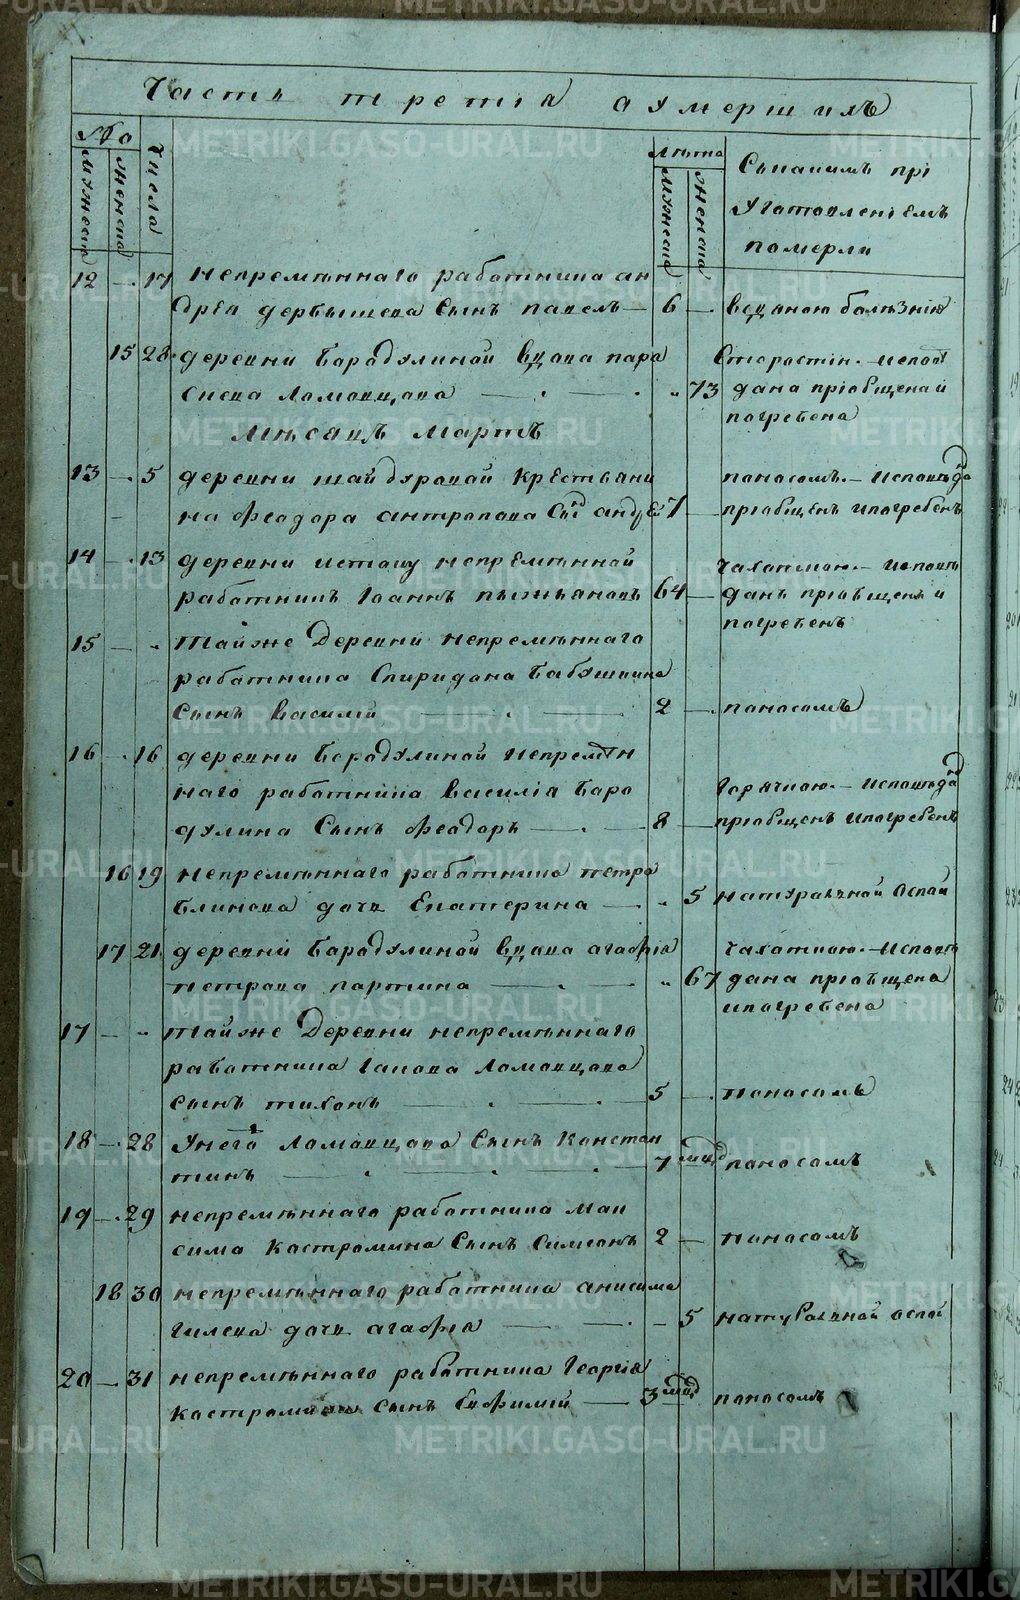 Часть третія о умершихъ
№
мужеска
женска
числа
лѣта
мужеска
женска
Съкакимъ прі
уготовленіемъ
померли
12 — 17 непремѣннаго работника ан
дрея дербышева сынъ павелъ — 6 — водяною болѣзнію
15 28 деревни Бородулиной вдова пара
скева Ломовцова — „ 73
Старостію. — испові
дана пріобщена и
погребена
мѣсяцъ мартъ
13 — 5 деревни шайдуровой крестьяни
на феодора антропова сынъ андрей 7 —
поносомъ. — исповѣдан
пріобщенъ ипогребенъ
14 — 13 деревни истоку непремѣнной
работникъ Іоаннъ пыжьяновъ 64 —
чахоткою. — исповѣ
данъ пріобщенъ и
погребенъ
15 — „ Тойже деревни непремѣннаго
работника Спиридона Бабушкина
сынъ василій — 2 — поносомъ
16 — 16 деревни Бородулиной непремѣн
наго работника василія Боро
дулина сынъ феодоръ — 8 —
горячкою. — исповѣдан
пріобщенъ ипогребенъ
16 19 непремѣннаго работника петра
Блинова дочь Екатерина — „ 5 натуральной оспой
17 21 деревни Бородулиной вдова агафія
петрова паркина — „ 67
чахоткою. — исповѣ
дана пріобщена
ипогребена
17 — „ тойже деревни непремѣннаго
работника Іакова Ломовцова
сынъ тихонъ — 5 — поносомъ
18 — 28 унего Ломовцова сынъ констан
тинъ — 7 мцд поносомъ
19 — 29 непремѣннаго работника мак
сима костромина сынъ симеонъ 2 — поносомъ
18 30 непремѣннаго работника анисима
гилева дочь агафія — 5 натуральной оспой
20 — 31 непремѣннаго работника георгія
костромина сынъ Евфимій — 3 мцд поносомъ
METRIKI.GASO-URAL.RU